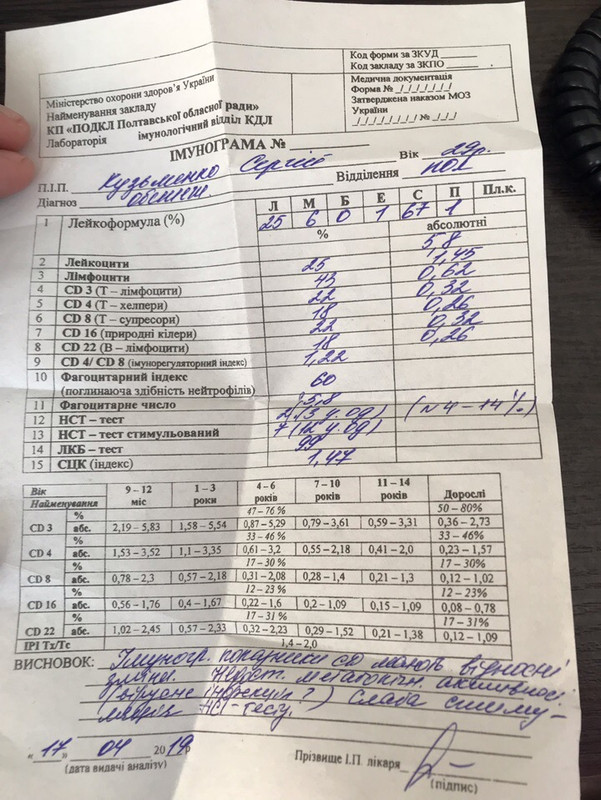 Код форми за ЗКУД
Код закладу за ЗКПО
Міністерство охорони здоров'я України
Найменування закладу
КП «ПОДКЛ Полтавської обласної ради»
Лабораторія імунологічний відділ КДЛ
Медична документація
Форма № _/_/_/_/_/_/_/
Затверджена наказом МОЗ
України
_/_/_/_/_/_/_/ № _/_/_
ІМУНОГРАМА №
П.І.П. Кузьменко Сергій Вік 29р.
Діагноз обстеж. Відділення пол
1 Лейкоформула (%) Л М Б Е С П Пл.к.
25 6 0 1 67 1
% абсолютні
2 Лейкоцити 5,8
3 Лімфоцити 25 1,45
4 CD 3 (Т – лімфоцити) 43 0,62
5 CD 4 (Т – хелпери) 22 0,32
6 CD 8 (Т – супресори) 18 0,26
7 CD 16 (природні кілери) 22 0,32
8 CD 22 (В – лімфоцити) 18 0,26
9 CD 4/ CD 8 (імунорегуляторний індекс) 1,22
10 Фагоцитарний індекс
(поглинаюча здібність нейтрофілів) 60
11 Фагоцитарне число 5,8
12 НСТ – тест 2 (3 у.од) (N 4 – 14%)
13 НСТ – тест стимульований 7 (12 у.од)
14 ЛКБ – тест 99
15 СЦК (індекс) 1,47
Вік 9 – 12 міс 1 – 3 роки 4 – 6 років 7 – 10 років 11 – 14 років Дорослі
Найменування
CD 3 % 47 – 76 % 50 – 80%
абс. 2,19 – 5,83 1,58 – 5,54 0,87 – 5,29 0,79 – 3,61 0,59 – 3,31 0,36 – 2,73
CD 4 % 33 – 46 % 33 – 46%
абс. 1,53 – 3,52 1,1 – 3,35 0,61 – 3,2 0,55 – 2,18 0,41 – 2,0 0,23 – 1,57
CD 8 % 17 – 30 % 17 – 30%
абс. 0,78 – 2,3 0,57 – 2,18 0,31 – 2,08 0,28 – 1,4 0,21 – 1,3 0,12 – 1,02
CD 16 % 12 – 23 % 12 – 23%
абс. 0,56 – 1,76 0,4 – 1,67 0,22 – 1,6 0,2 – 1,09 0,15 – 1,09 0,08 – 0,78
CD 22 % 17 – 31 % 17 – 31%
абс. 1,02 – 2,45 0,57 – 2,33 0,32 – 2,23 0,29 – 1,52 0,21 – 1,38 0,12 – 1,09
ІРІ Тх/Тс 1,4 – 2,0
ВИСНОВОК: Імуногр. показники CD мають відносні
зміни. активност
(вірусне інфекція ?) Слаба стиму–
ляція НСТ–тесту.
« 17 » 04 2019р
(дата видачі аналізу)
Прізвище І.П. лікаря
(підпис)